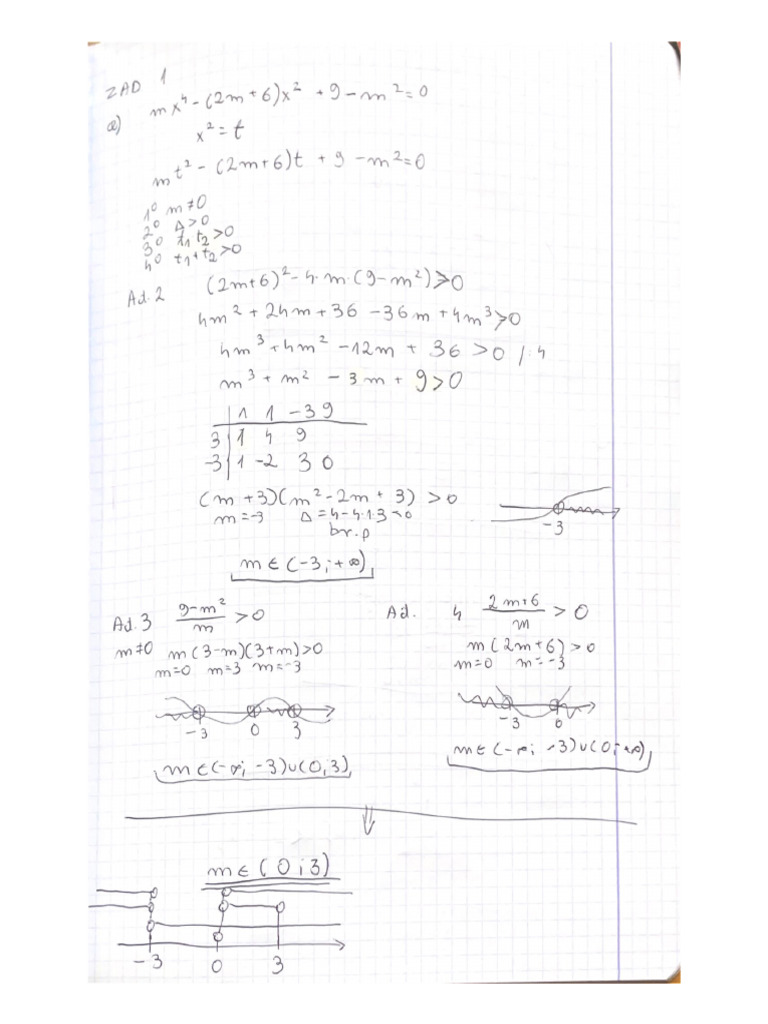 ZAD 1
a) mx⁴ - (2m + 6)x² + 9 - m² = 0
x² = t
mt² - (2m+6)t + 9 - m² = 0
1° m ≠ 0
2° Δ > 0
3° t₁ t₂ > 0
4° t₁ + t₂ > 0
Ad. 2 (2m+6)² - 4·m·(9 - m²) > 0
4m² + 24m + 36 - 36m + 4m³ > 0
4m³ + 4m² - 12m + 36 > 0 /:4
m³ + m² - 3m + 9 > 0
1 1 -3 9
3 | 1 4 9
-3 | 1 -2 3 0
(m + 3)(m² - 2m + 3) > 0
m = -3 Δ = 4 - 4·1·3 < 0
br. p
-3
m ∈ (-3; +∞)
Ad. 3 (9-m²)/m > 0
m ≠ 0 m(3-m)(3+m) > 0
m=0 m=3 m=-3
-3 0 3
m ∈ (-∞; -3) ∪ (0; 3)
Ad. 4 (2m+6)/m > 0
m(2m+6) > 0
m=0 m=-3
-3 0
m ∈ (-∞; -3) ∪ (0; +∞)
⇓
m ∈ (0; 3)
-3 0 3